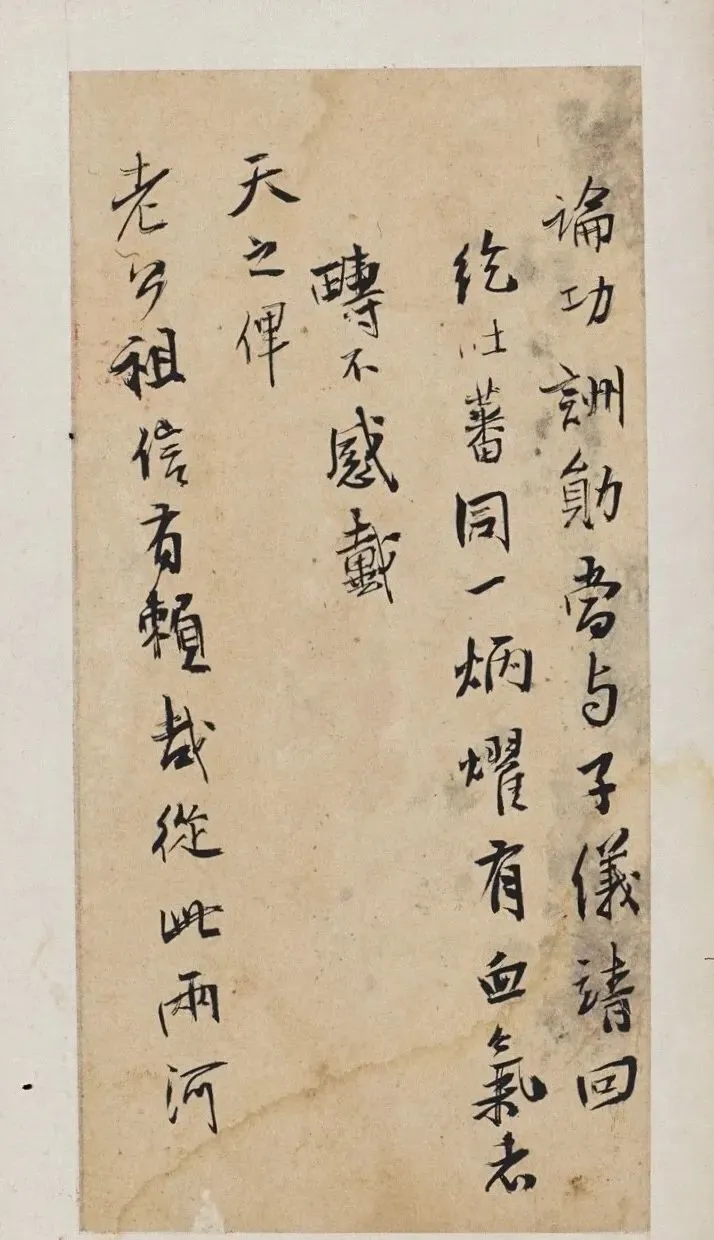 論功詶勛當与子儀靖回
紇吐蕃同一炳燿有血氣者
疇不感戴
天之俾
老公祖信有賴哉從此兩河